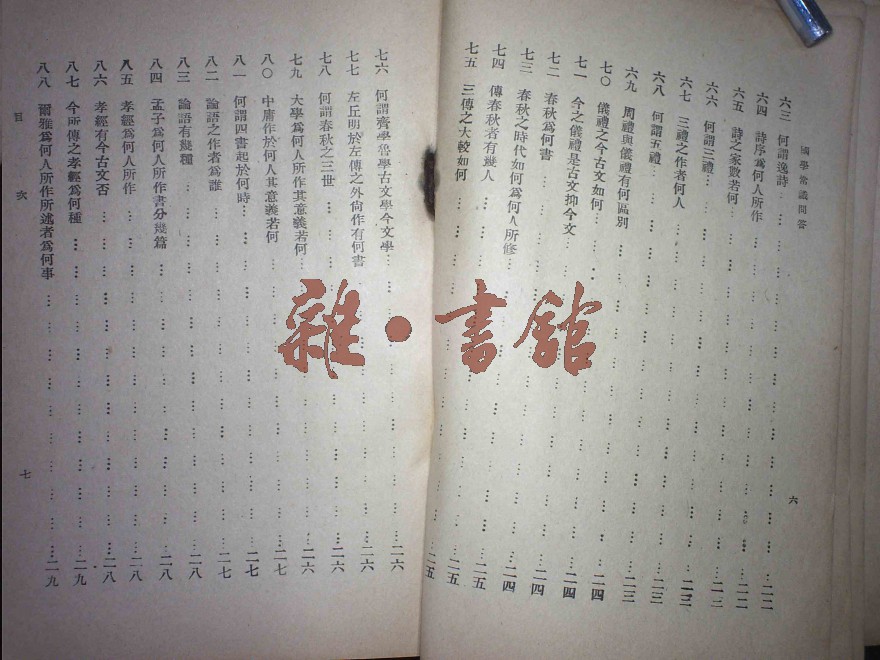 國學常識問答
六三 何謂逸詩 二二
六四 詩序爲何人所作 二二
六五 詩之家數若何 二二
六六 何謂三禮 二三
六七 三禮之作者何人 二三
六八 何謂五禮 二三
六九 周禮與儀禮有何區別 二三
七〇 儀禮之今古文如何 二四
七一 今之儀禮是古文抑今文 二四
七二 春秋爲何書 二四
七三 春秋之時代如何爲何人所修 二四
七四 傳春秋者有幾人 二五
七五 三傳之大較如何 二五
六
七六 何謂齊學魯學古文學今文學 二六
七七 左丘明於左傳之外尙作有何書 二六
七八 何謂春秋之三世 二六
七九 大學爲何人所作其意義若何 二六
八〇 中庸作於何人其意義若何 二七
八一 何謂四書起於何時 二七
八二 論語之作者爲誰 二七
八三 論語有幾種 二八
八四 孟子爲何人所作書分幾篇 二八
八五 孝經爲何人所作 二八
八六 孝經有今古文否 二八
八七 今所傳之孝經爲何種 二九
八八 爾雅爲何人所作所述者爲何事 二九
目次
七
雜·書館